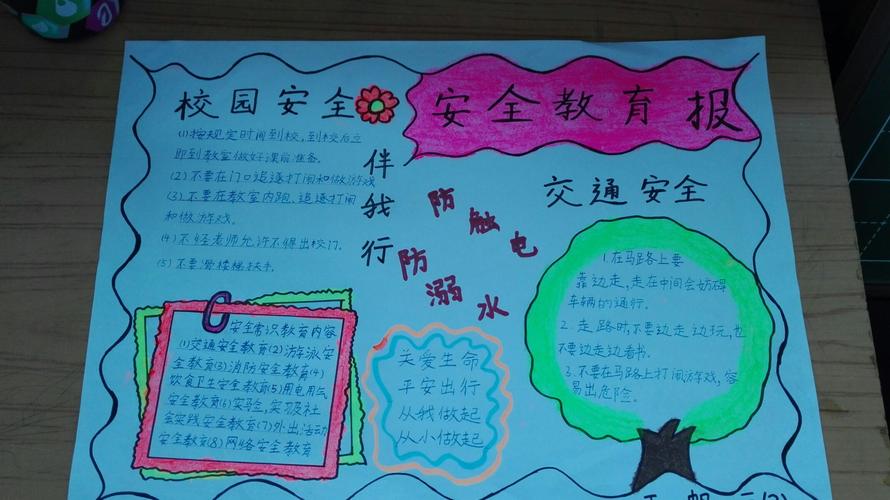 安全教育报
校园安全
伴我行
(1)按规定时间到校,到校后立
即到教室做好课前准备.
(2)不要在门口追逐打闹和做游戏
(3)不要在教室内跑、追逐打闹
和做游戏.
(4)不经老师允许不得出校门.
(5)不要滑楼梯扶手.
防触电
防溺水
交通安全
1.在马路上要
靠边走,走在中间会妨碍
车辆的通行.
2.走路时,不要边走边玩,也
不要边走边看书.
3.不要在马路上打闹游戏,容
易出危险.
安全常识教育内容
(1)交通安全教育(2)游泳安
全教育(3)消防安全教育(4)
饮食卫生安全教育(5)用电用气
安全教育(6)实验,实习及社
会实践安全教育(7)外出活动
安全教育(8)网络安全教育
关爱生命
平安出行
从我做起
从小做起